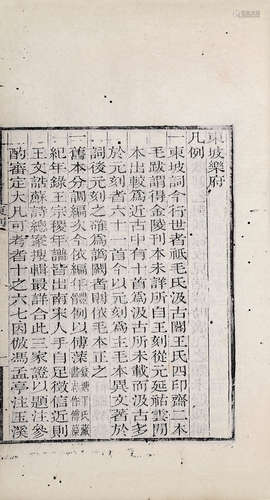 東坡樂府
凡例
一東坡詞今行世者祇毛氏汲古閣王氏四印齋二本
毛跋謂得金陵刊本未詳所自王刻從元延祐雲間
本出較爲近古中有十首爲汲古所未載而汲古多
於元刻者六十一首今以元刻爲主毛本異文著於
詞後元刻之確爲譌闕者則依毛本正之
一舊本分調編次今依編年體例以傅藻錢塘丁氏藏書志作傅藻
紀年錄王宗稷年譜皆出南宋人手自足徵信近則
王文誥蘇詩總案搜輯最詳合此三家證以題注參
酌審定大凡可考者十之六七因倣馮孟亭注玉溪